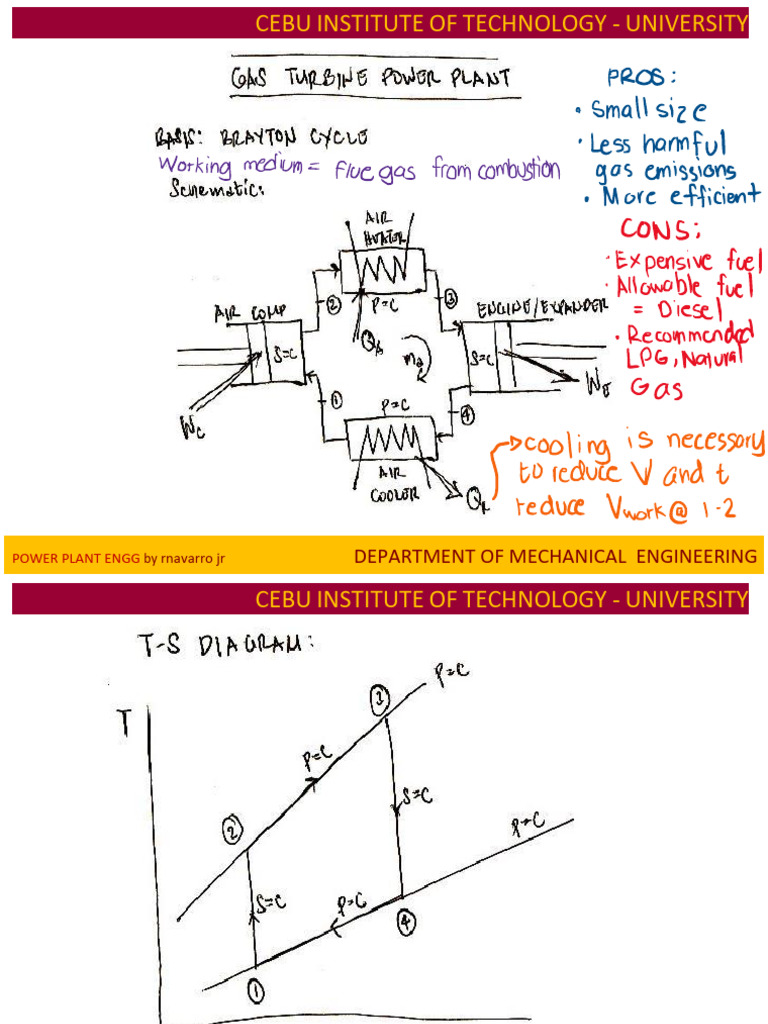 CEBU INSTITUTE OF TECHNOLOGY - UNIVERSITY
GAS TURBINE POWER PLANT
BASIS: BRAYTON CYCLE
Working medium = flue gas from combustion
Schematic:
PROS:
• Small size
• Less harmful
gas emissions
• More efficient
CONS:
• Expensive fuel
• Allowable fuel
= Diesel
• Recommended
LPG, Natural
Gas
AIR
HEATER
P=C
QA
2
3
AIR COMP
S=C
WC
ENGINE/EXPANDER
S=C
ma
1
4
P=C
AIR
COOLER
QR
cooling is necessary
to reduce V and t
reduce Vwork @ 1-2
POWER PLANT ENGG by rnavarro jr
DEPARTMENT OF MECHANICAL ENGINEERING
CEBU INSTITUTE OF TECHNOLOGY - UNIVERSITY
T-S DIAGRAM:
T
P=C
3
P=C
2
S=C
P=C
S=C
P=C
4
1